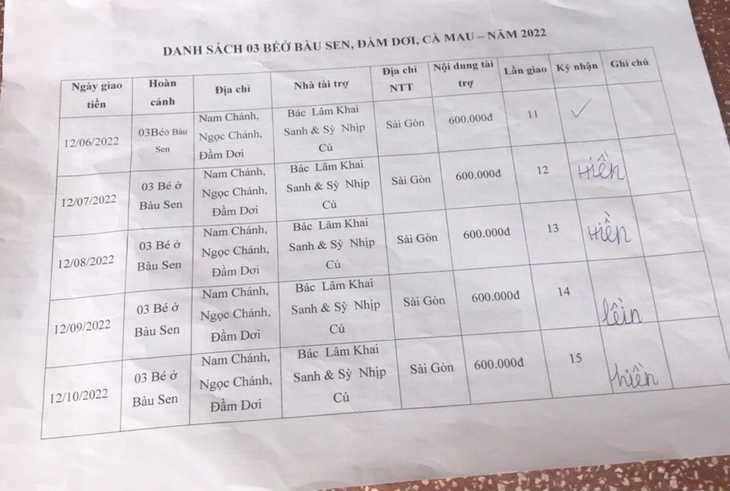 DANH SÁCH 03 BÉỞ BÀU SEN, ĐẦM DƠI, CÀ MAU – NĂM 2022
Ngày giao tiền Hoàn cảnh Địa chỉ Nhà tài trợ Địa chỉ NTT Nội dung tài trợ Lần giao Ký nhận Ghi chú
12/06/2022 03Béở Bàu Sen Nam Chánh, Ngọc Chánh, Đầm Dơi Bác Lâm Khai Sanh & Sỹ Nhịp Cú Sài Gòn 600.000đ 11 ✓
12/07/2022 03 Bé ở Bàu Sen Nam Chánh, Ngọc Chánh, Đầm Dơi Bác Lâm Khai Sanh & Sỹ Nhịp Cú Sài Gòn 600.000đ 12 Hiền
12/08/2022 03 Bé ở Bàu Sen Nam Chánh, Ngọc Chánh, Đầm Dơi Bác Lâm Khai Sanh & Sỹ Nhịp Cú Sài Gòn 600.000đ 13 Hiền
12/09/2022 03 Bé ở Bàu Sen Nam Chánh, Ngọc Chánh, Đầm Dơi Bác Lâm Khai Sanh & Sỹ Nhịp Cú Sài Gòn 600.000đ 14
12/10/2022 03 Bé ở Bàu Sen Nam Chánh, Ngọc Chánh, Đầm Dơi Bác Lâm Khai Sanh & Sỹ Nhịp Cú Sài Gòn 600.000đ 15 hiền